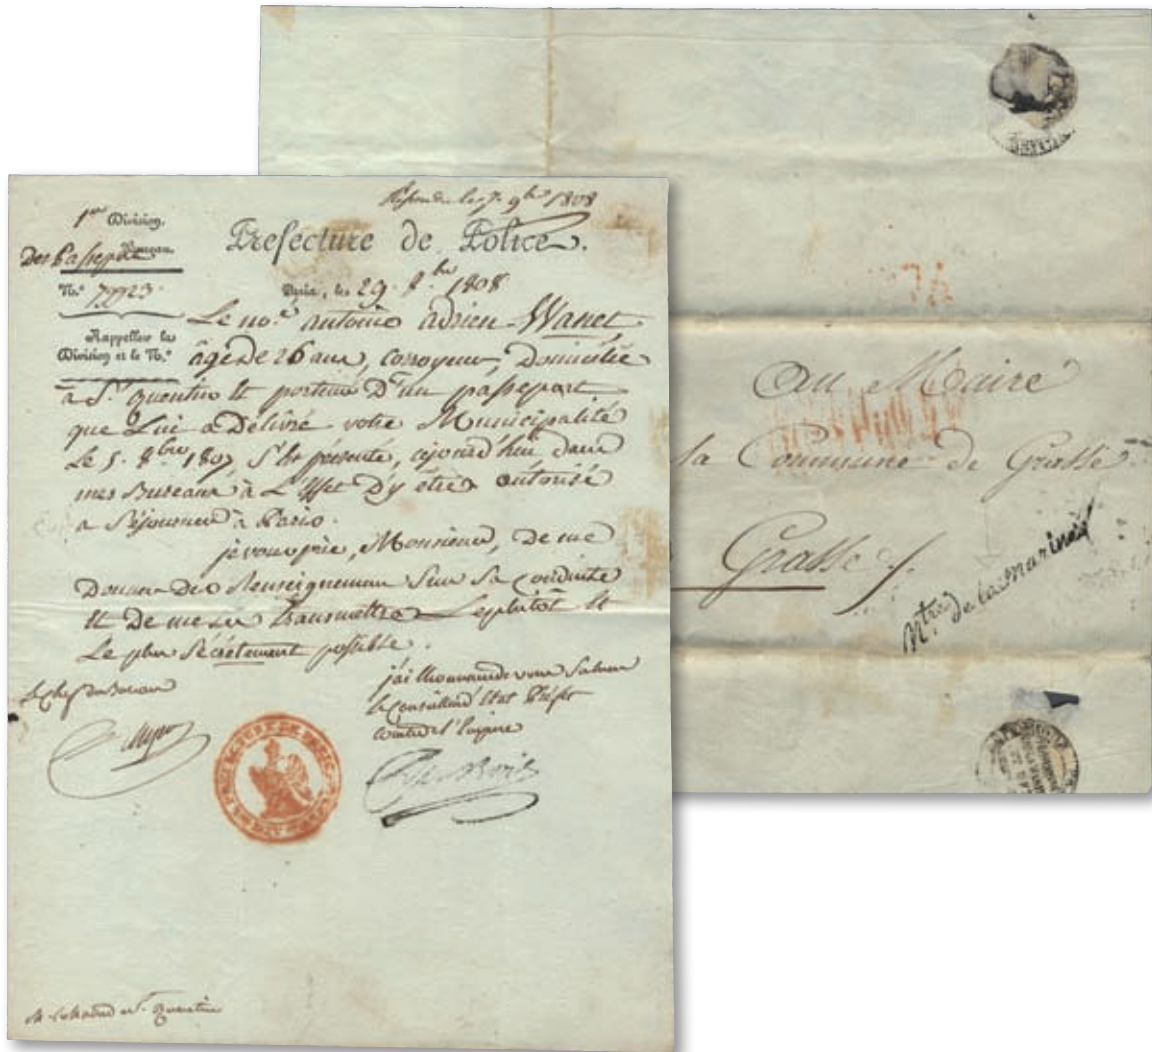 Répondu le 7. 9bre 1808
1ere Division.
Bureau
Des Passeports
N.º
Rappeller la
Division et le N.º
Préfecture de Police.
Paris, le 29. 8.bre 1808
Le no.é antoine adrien Wanet
âgé de 26 ans, corroyeur, Domicilié
à S.t quentin et porteur D'un passeport
que Lui a Délivré votre Municipalité
Le 5. 8.bre 1807 s'est présenté, cejourd'hui dans
mes Bureaux à L'effet D'y être autorisé
a séjourner à Paris.
je vous prie, Monsieur, De me
Donner Des Renseignemens Sur Sa Conduite
et De me les transmettre Le plutôt et
Le plus Secrètement possible.
j'ai l'honneur de vous saluer
Le Conseiller d'Etat Préfet
comte de l'Empire
Le Chef du Bureau
M. le Maire de St. Quentin
Au Maire
la Commune de Grasse
Grasse
Mtre de la marine